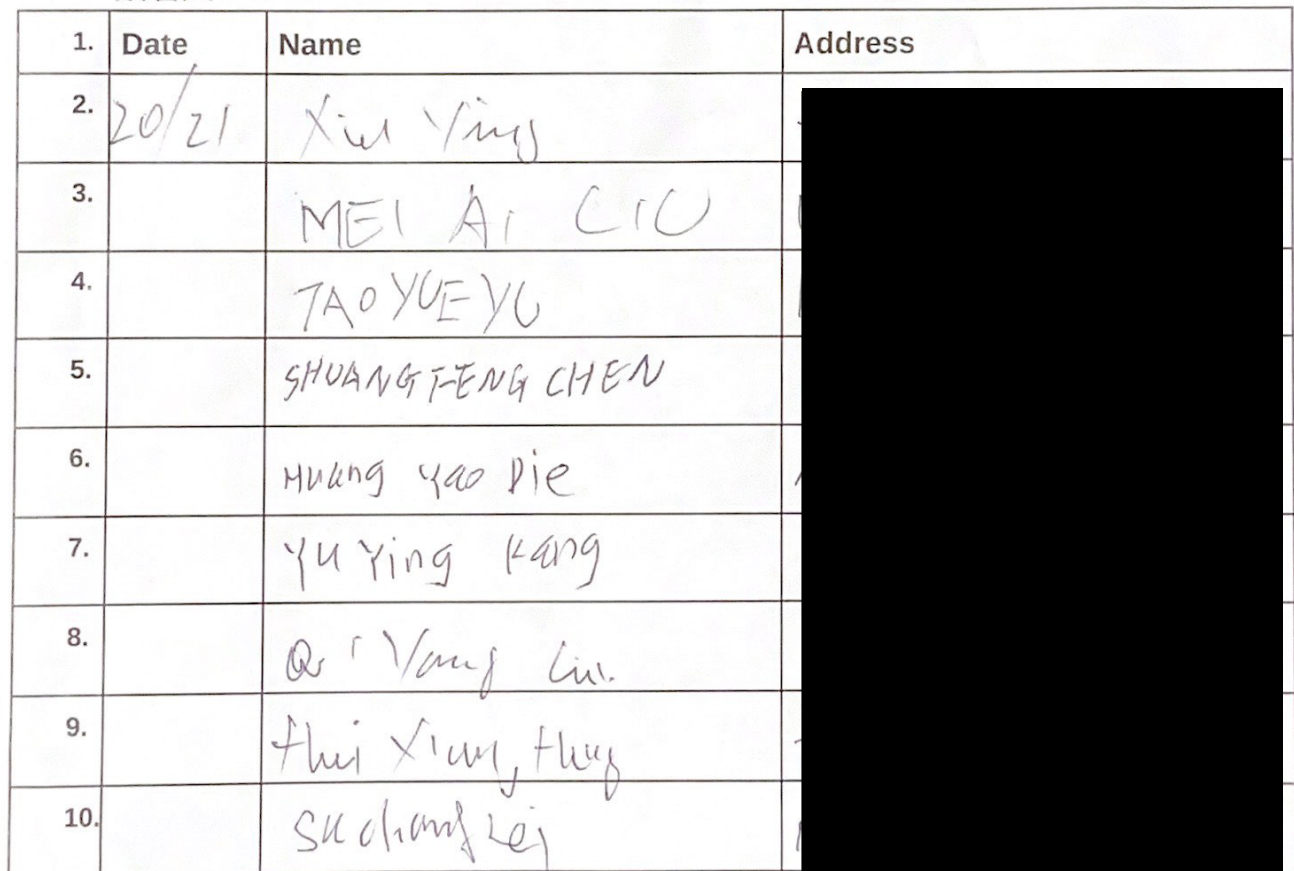 1. Date Name Address
2. 20/21 Xie Ying
3. MEI Ai LIU
4. TAO YUE YU
5. SHUANG FENG CHEN
6. Huang Yao Die
7. Yu Ying Kang
8. Qi Yang Liu.
9.
10. Su chang Lei